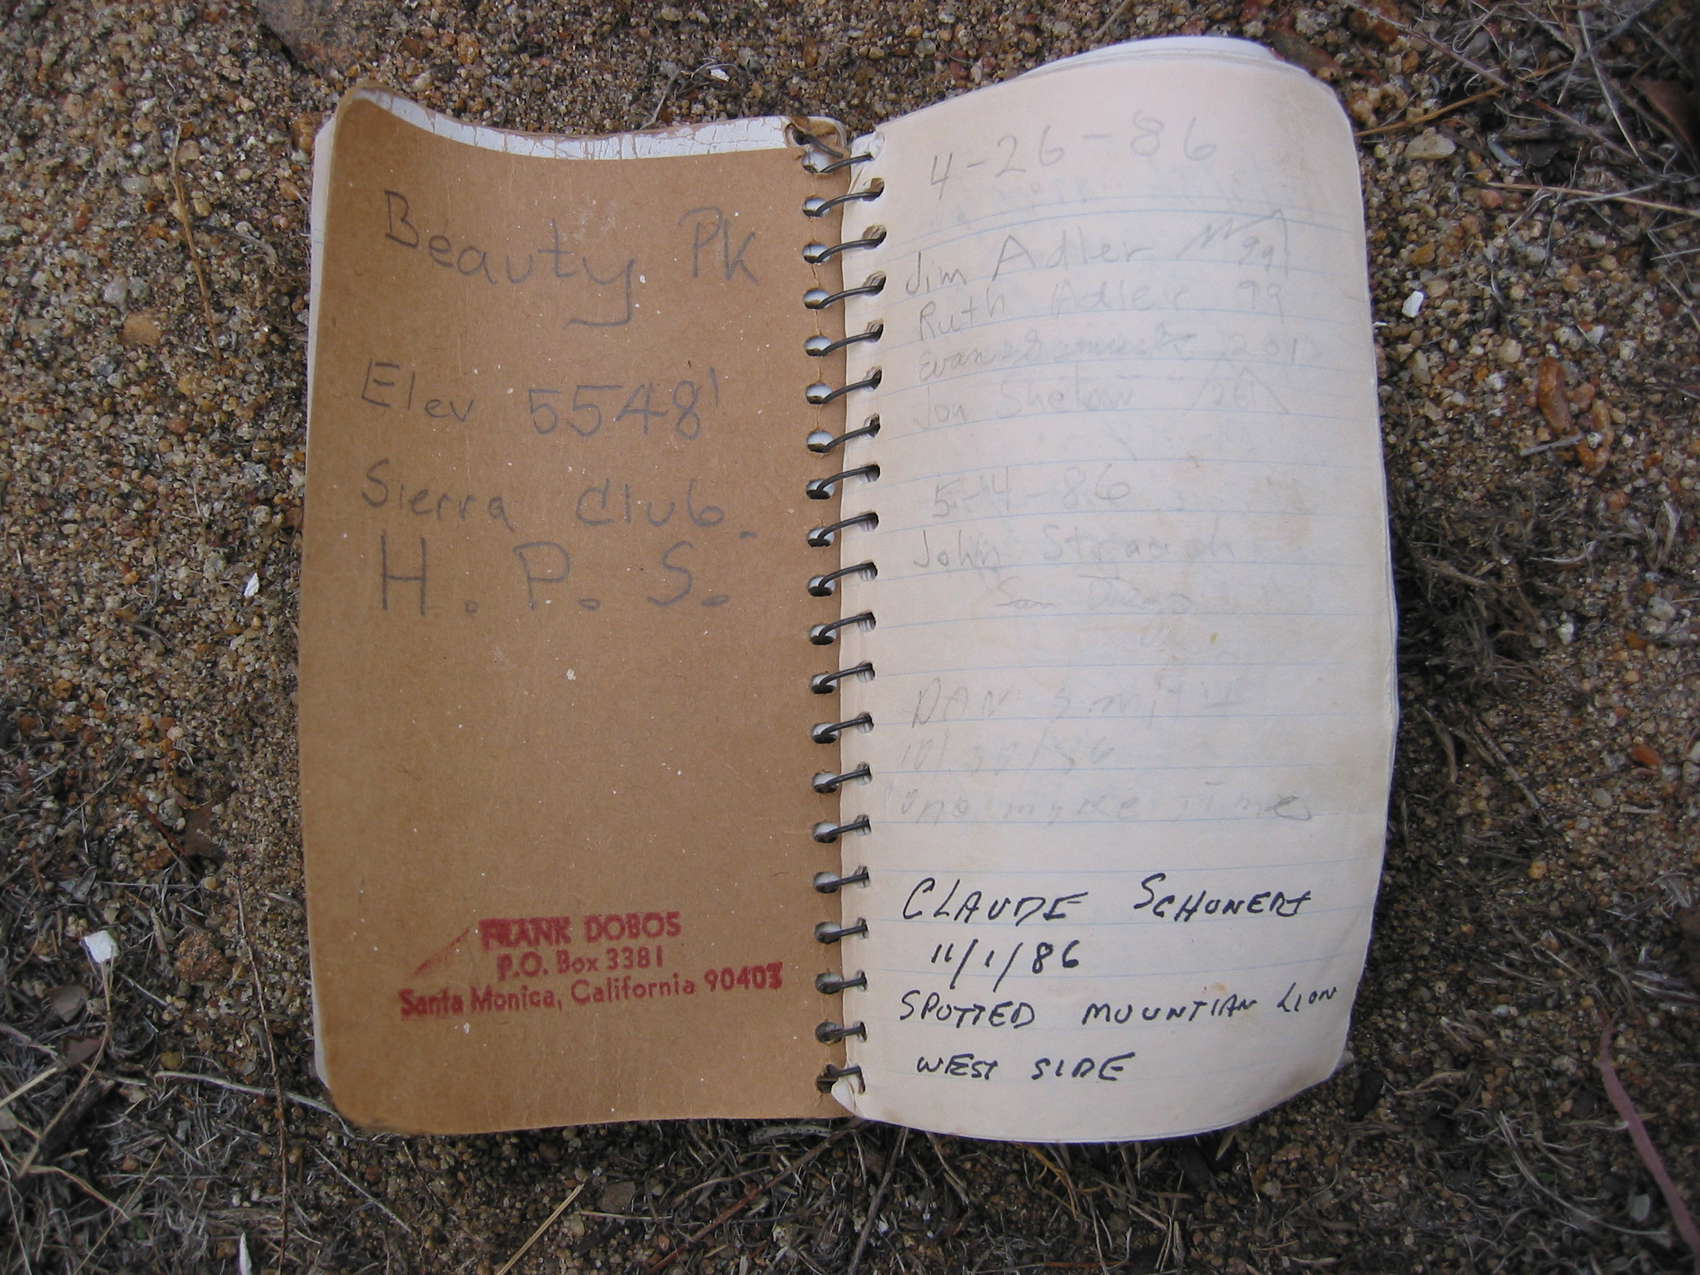 Beauty Pk
Elev 5548'
Sierra Club
H. P. S.
FRANK DOBOS
P.O. Box 3381
Santa Monica, California 90403
4-26-86
Jim Adler 99
Ruth Adler 99
Jon
5-4-86
John
San Diego
DAN SMITH
CLAUDE SCHUNERT
11/1/86
SPOTTED MOUNTIAN LION
WEST SIDE